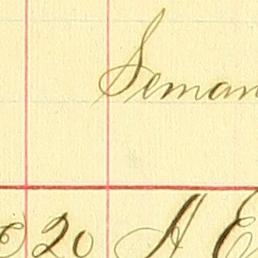 Seman
20 A E